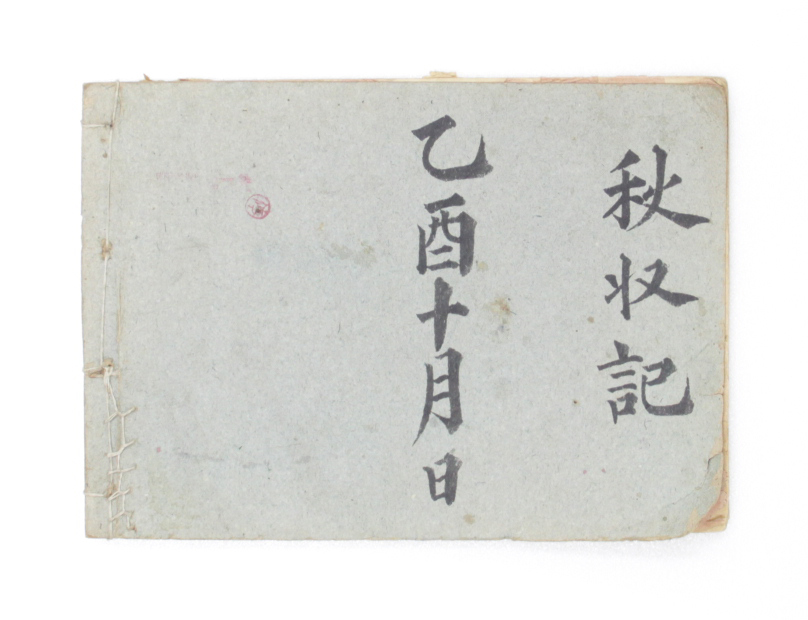 秋収記
乙酉十月日